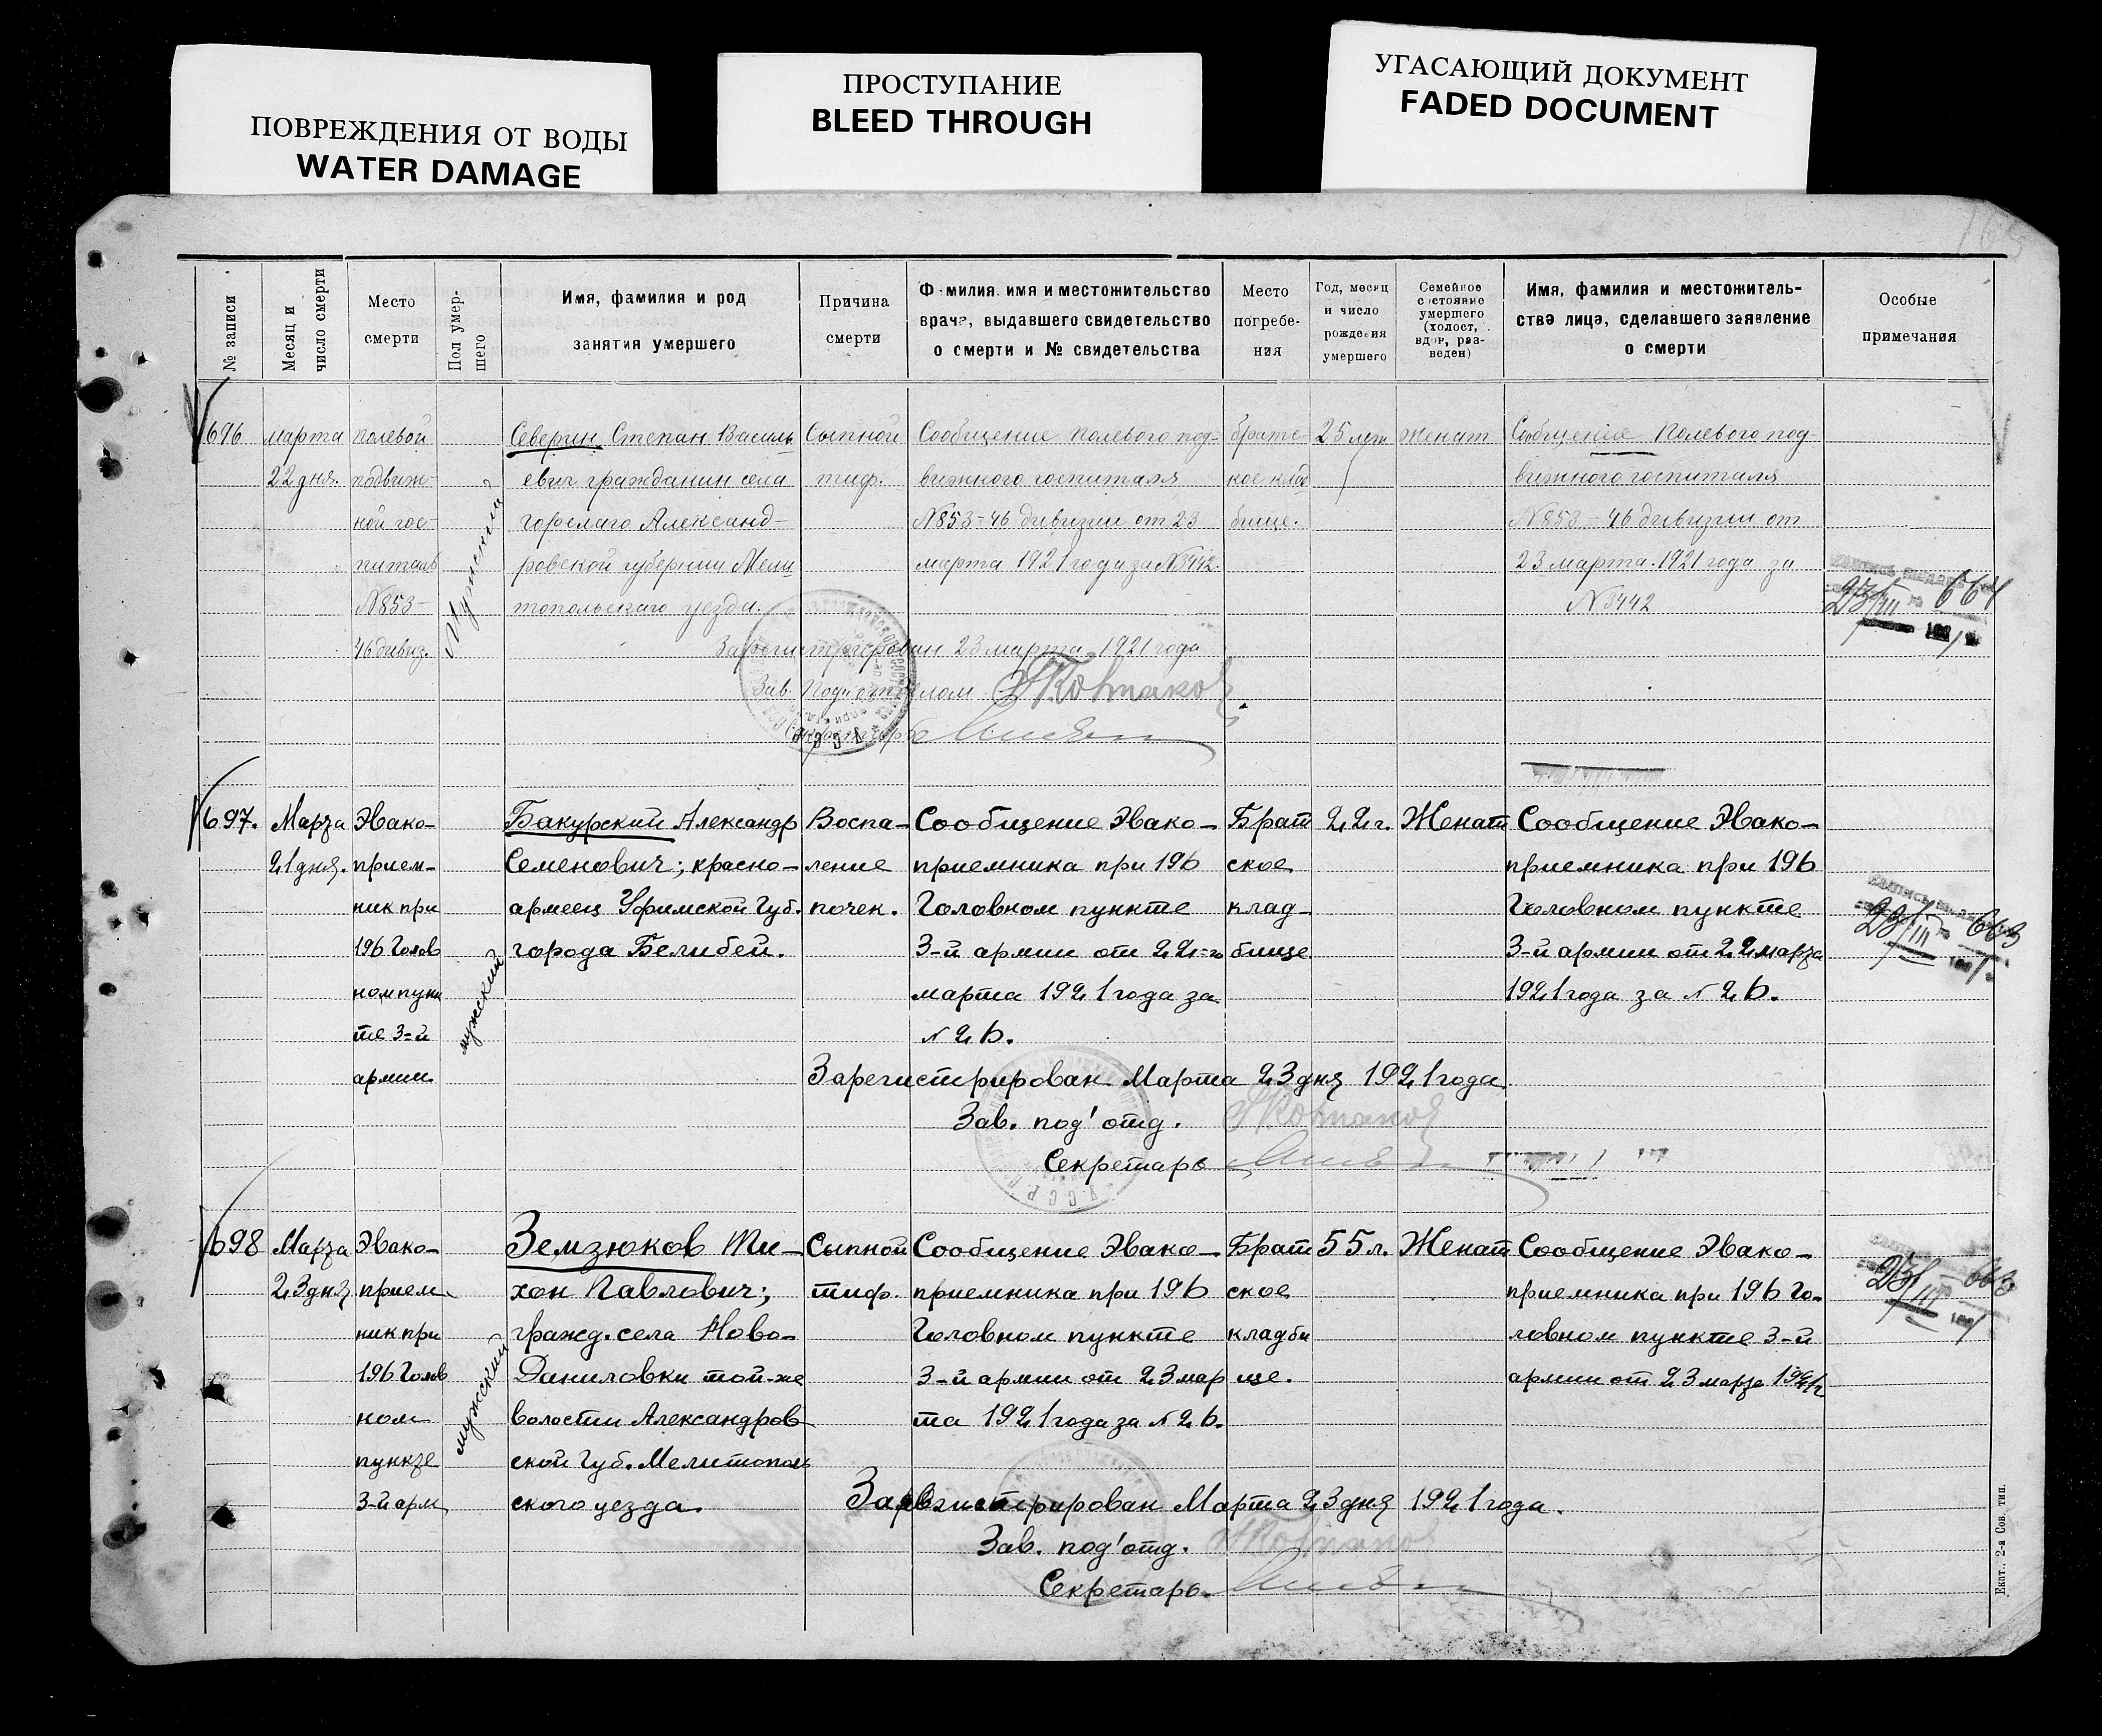 ПОВРЕЖДЕНИЯ ОТ ВОДЫ
WATER DAMAGE
ПРОСТУПАНИЕ
BLEED THROUGH
УГАСАЮЩИЙ ДОКУМЕНТ
FADED DOCUMENT
№ записи
Месяц и
число смерти
Место
смерти
Пол умер-
шего
Имя, фамилия и род
занятия умершего
Причина
смерти
Фамилия, имя и местожительство
врача, выдавшего свидетельство
о смерти и № свидетельства
Место
погребе-
ния
Год, месяц
и число
рождения
умершего
Семейное
состояние
умершего
(холост,
вдов, раз-
веден)
Имя, фамилия и местожитель-
ство лица, сделавшего заявление
о смерти
Особые
примечания
696
марта
22 дня.
полевой
подвиж-
ной гос-
питаль
№853-
46 дивиз.
Мужеский
Северин Степан Василь
евич гражданин села
Александ-
ровской губернии Мели
топольскаго уезда.
Сыпной
тиф.
Сообщение полевого под-
вижного госпиталя
№853-46 дивизии от 23
марта 1921 года за №3442.
братс
кое клад
бище.
25 лет
женат
Сообщение полевого под-
вижного госпиталя
№853-46 дивизии от
23 марта 1921 года за
№3442
23/III 664
Зарегистрирован 23 марта 1921 года
Зав. Подотделом
Секретарь
697.
Марта
21 дня.
Эвако-
прием-
ник при
196 Голов
ном пунк
те 3-й
армии.
мужский
Бакурский Александр
Семенович; красно-
армеец Уфимской Губ.
города Белибей.
Воспа-
ление
почек.
Сообщение Эвако-
приемника при 196
Головном пункте
3-й армии от 22-го
марта 1921 года за
№26.
Брат
ское
клад-
бище
22 г.
Женат
Сообщение Эвако-
приемника при 196
Головном пункте
3-й армии от 22 марта
1921 года за №26.
23/III 663
Зарегистрирован Марта 23 дня 1921 года
Зав. под'отд.
Секретарь
У.С.С.Р.
698
Марта
23 дня
Эвако-
прием
ник при
196 Голов
ном
пункте
3-й арм
мужский
Земзюков Ти-
хон Павлович;
гражд. села Ново-
Даниловки той-же
волости Александров
ской Губ. Мелитополь
ского уезда.
Сыпной
тиф.
Сообщение Эвако-
приемника при 196
Головном пункте
3-й армии от 23 мар
та 1921 года за №26.
Брат
ское
кладби
ще.
55 л.
Женат
Сообщение Эвако-
приемника при 196 Го-
ловном пункте 3-й
армии от 23 марта 1921 г
23/III 663
Зарегистрирован Марта 23 дня 1921 года.
Зав. под'отд.
Секретарь.
Екат. 2-я Сов. тип.